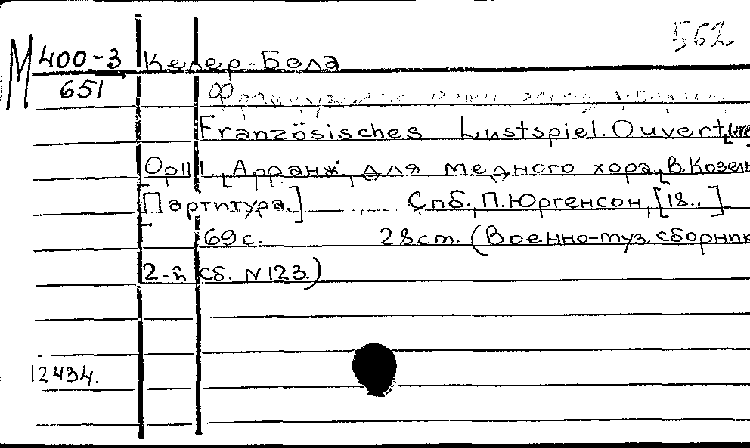 562
М 400-3 Келер-Бела
651
Französisches Lustspiel. Ouvert[ure
Op111, [Арранж. для медного хора, В. Козек
[Партитура.] Спб., П. Юргенсон, [18..]
69 с. 28 cm. (Военно-муз. сборник
2-й сб. N 123)
12434.